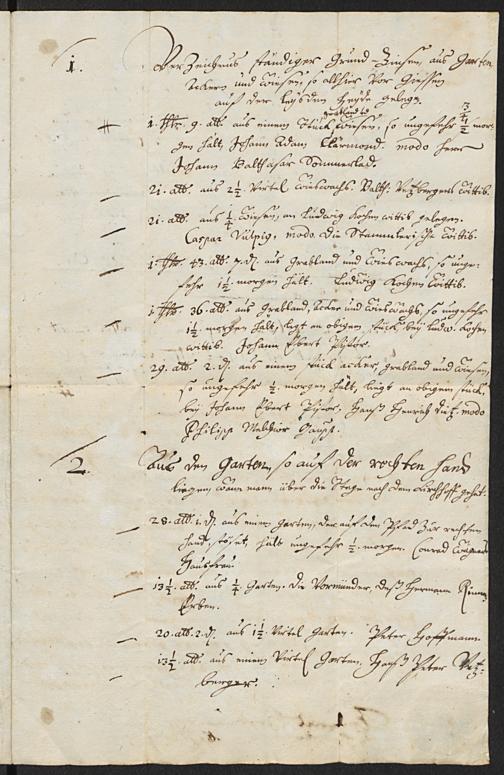 1. Verzeichnus ständiger Grund-Zinsen, aus Garten
Ackern und Wiesen, so allhier vor Giessen
auf der Heyde gelegen.
1. fl. 9. alb. aus einem Stück Wiesen, so ungefehr mor-
grabland
gen hält, Johann Adam modo Herr
Johann Balthasar Sommerlad.
21. alb. aus 2½ Virtel Wieswachs. Balth. Wittib.
21. alb. aus ¼ Wiesen, an Ludwig Kochen wittib gelegen.
Caspar modo die Wittib.
1. fl. 43. alb. 7. d. aus Grabland und Wieswachs, so unge-
fehr 1½ morgen hält. Ludwig Kochen Wittib.
1. fl. 36. alb. aus Grabland, Acker und Wieswachs, so ungefehr
1½ morgen hält, ligt an obigem stück bey Ludw. Kochen
wittib. Johann Ebert Pistor.
29. alb. 2. d. aus einem stück acker, grabland und Wiesen,
so ungefehr ½ morgen hält, ligt an obigem stück,
bey Johann Ebert Pistor, Hanß Henrich modo
Philipp Melchior
2. Aus den Garten, so auf der rechten Hand
liegen, wann mann über die Stege nach dem Kirchhoff gehet.
28. alb. 1. d. aus einem Garten, der auf den Pfad zur rechten
hand, stöset, hält ungefehr ½ morgen. Conrad
Haußfrau.
13½ alb. aus ¼ Garten. Die Vormünder, deß Hermann
Erben.
20. alb. 2. d. aus 1½ Virtel Garten. Peter Hoffmann.
13½ alb. aus einem Virtel Garten, Hanß Peter
berger.